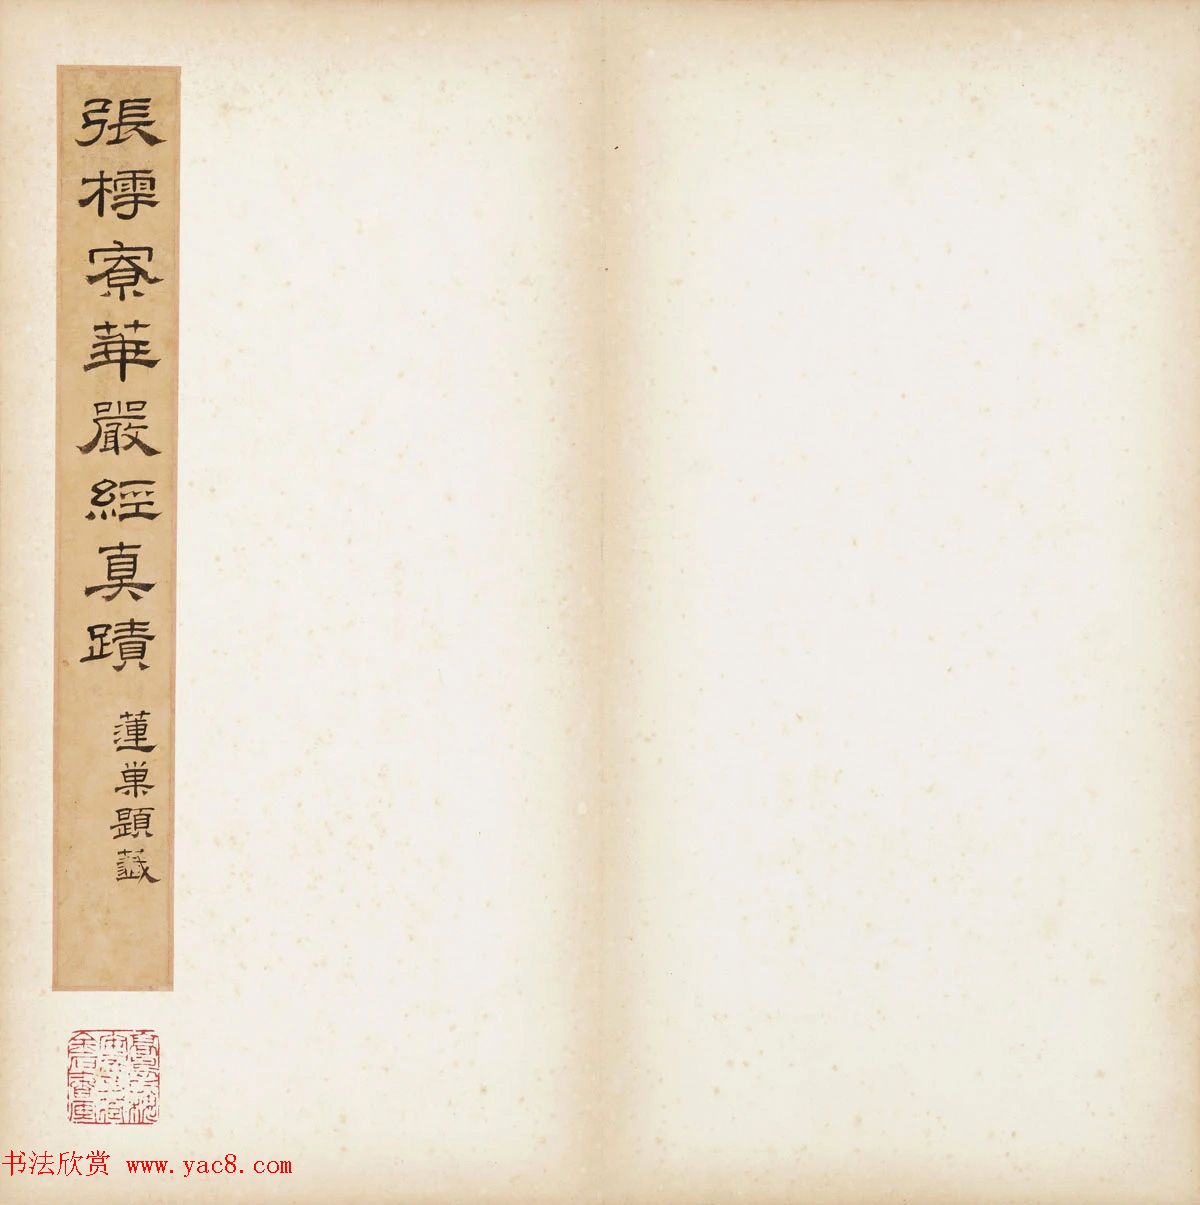 張樗寮華嚴經真蹟
蓮巢題籖
书法欣赏 www.yac8.com